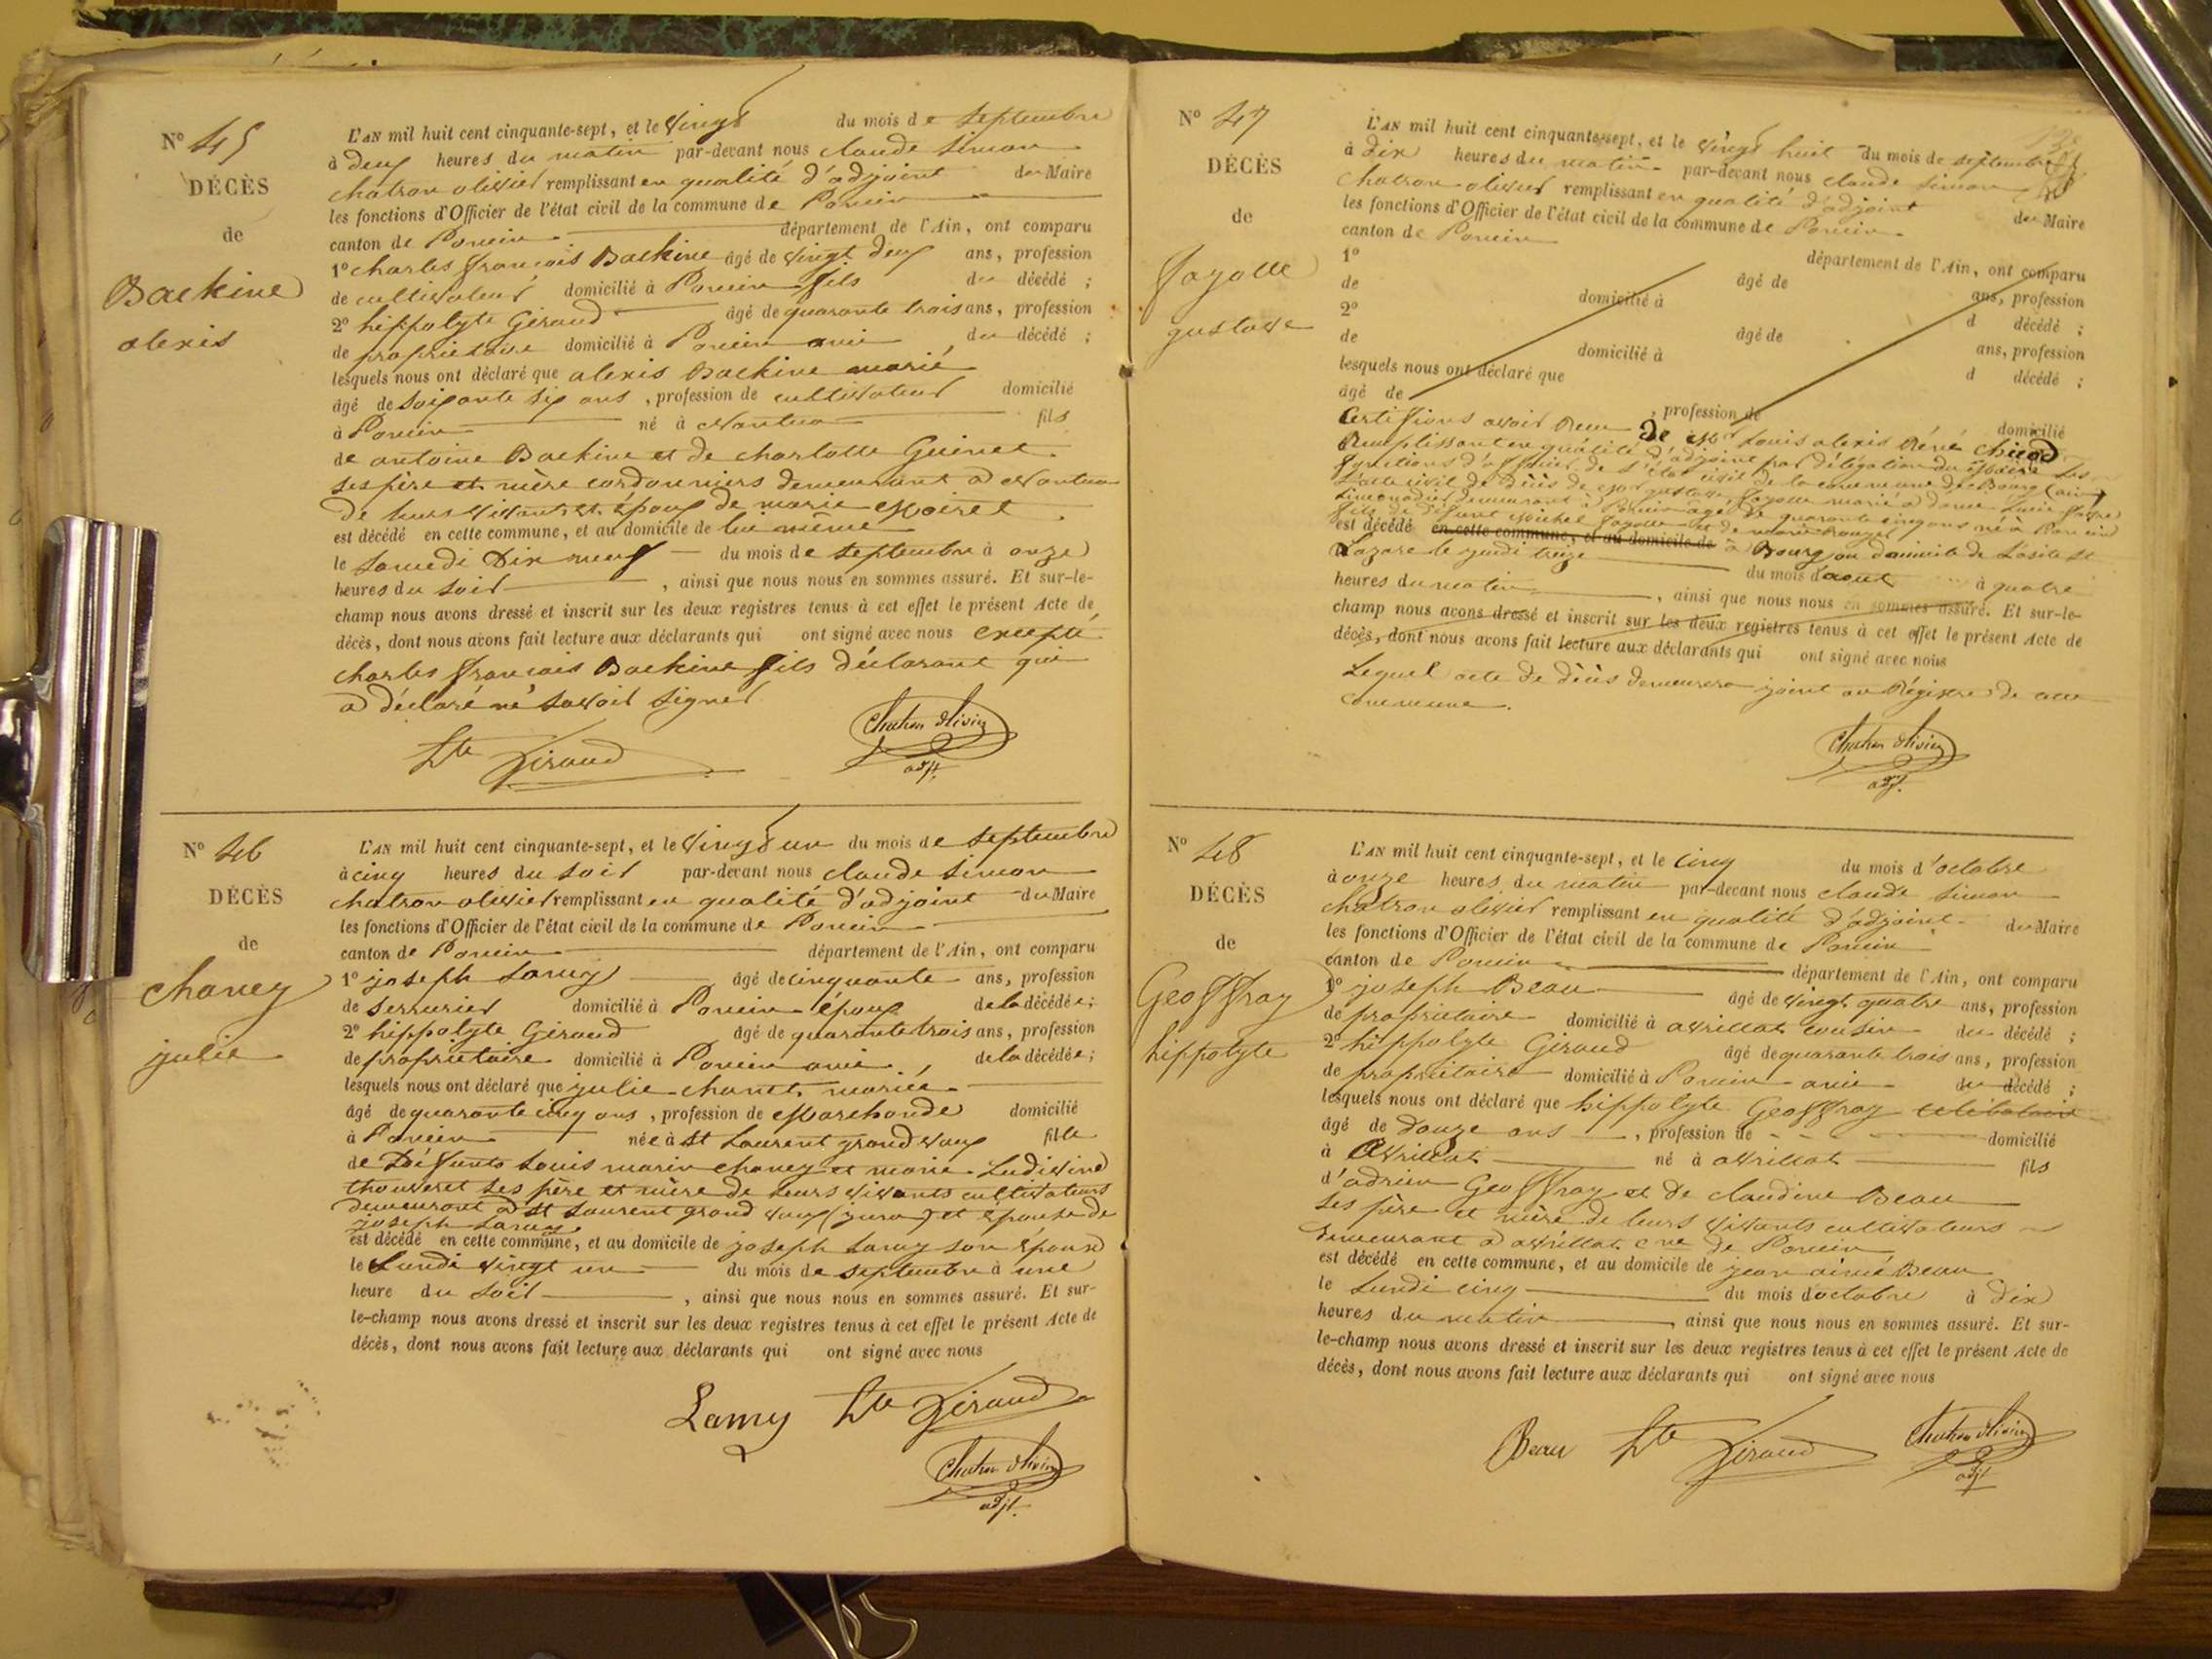 N° 45
DÉCÈS
de
Backine
alexis
L'AN mil huit cent cinquante-sept, et le vingt du mois de septembre
à deux heures du matin par-devant nous claude simon
chatron olivier remplissant en qualité d'adjoint du Maire
les fonctions d'Officier de l'état civil de la commune de Poncin
canton de Poncin département de l'Ain, ont comparu
1° charles francois Backine âgé de vingt deux ans, profession
de cultivateur domicilié à Poncin fils du décédé ;
2° hippolyte Giraud âgé de quarante trois ans, profession
de propriétaire domicilié à Poncin ami du décédé ;
lesquels nous ont déclaré que alexis Backine marié
âgé de soixante six ans, profession de cultivateur domicilié
à Poncin né à Nantua fils
de antoine Backine et de charlotte Guinet
ses père et mère cordonniers demeurant à Nantua
de leurs vivants et époux de marie Moiret
est décédé en cette commune, et au domicile de lui même
le samedi Dix neuf du mois de septembre à onze
heures du soir, ainsi que nous nous en sommes assuré. Et sur-le-
champ nous avons dressé et inscrit sur les deux registres tenus à cet effet le présent Acte de
décès, dont nous avons fait lecture aux déclarants qui ont signé avec nous excepté
charles francois Backine fils déclarant qui
a déclaré ne savoir signer
hte Giraud
Chatron olivier
adjt.
N° 46
DÉCÈS
de
chaney
julie
L'AN mil huit cent cinquante-sept, et le vingt un du mois de septembre
à cinq heures du soir par-devant nous claude simon
chatron olivier remplissant en qualité d'adjoint du Maire
les fonctions d'Officier de l'état civil de la commune de Poncin
canton de Poncin département de l'Ain, ont comparu
1° joseph Lamy âgé de cinquante ans, profession
de serrurier domicilié à Poncin époux de la décédée ;
2° hippolyte Giraud âgé de quarante trois ans, profession
de propriétaire domicilié à Poncin ami, de la décédée ;
lesquels nous ont déclaré que julie chaney mariée
âgé de quarante cinq ans, profession de Marchande domicilié
à Poncin née à st Laurent grandvaux fille
de Défunts Louis marin chaney et marie Ludivine
thouveret ses père et mère de leurs vivants cultivateurs
demeurant à st Laurent grand vaux (jura) et épouse de
joseph Lamy
est décédé en cette commune, et au domicile de joseph Lamy son époux
le Lundi vingt un du mois de septembre à une
heure du soir, ainsi que nous nous en sommes assuré. Et sur-
le-champ nous avons dressé et inscrit sur les deux registres tenus à cet effet le présent Acte de
décès, dont nous avons fait lecture aux déclarants qui ont signé avec nous
Lamy hte Giraud
Chatron olivier
adjt.
N° 47
DÉCÈS
de
fayolle
gustave
L'AN mil huit cent cinquante-sept, et le vingt huit du mois de septembre
à dix heures du matin par-devant nous claude simon
chatron olivier remplissant en qualité d'adjoint du Maire
les fonctions d'Officier de l'état civil de la commune de Poncin
canton de Poncin
département de l'Ain, ont comparu
1° âgé de ans, profession
de domicilié à d décédé ;
2° âgé de ans, profession
de domicilié à d décédé ;
lesquels nous ont déclaré que
âgé de, profession de domicilié
Certifions avoir Reçu De Mr Louis alexis Réné
Remplissant en qualité d'adjoint par délégation du Maire Les
fonctions d'officier de l'état civil de la commune de Bourg (ain)
L'acte civil de Décès de gustave fayolle marié à dame
Limonadier demeurant à Poncin âgé de quarante cinq ans né à Poncin
fils de défunt Michel fayolle et de marie
est décédé en cette commune, et au domicile de à Bourg au domicile de L'asile st
Lazare le jeudi treize du mois d'aout à quatre
heures du matin, ainsi que nous nous en sommes assuré. Et sur-le-
champ nous avons dressé et inscrit sur les deux registres tenus à cet effet le présent Acte de
décès, dont nous avons fait lecture aux déclarants qui ont signé avec nous
Lequel acte de décès demeurera joint au Régistre de cette
commune.
Chatron olivier
adjt.
N° 48
DÉCÈS
de
Geoffray
hippolyte
L'AN mil huit cent cinquante-sept, et le cinq du mois d'octobre
à onze heures du matin par-devant nous claude simon
chatron olivier remplissant en qualité d'adjoint du Maire
les fonctions d'Officier de l'état civil de la commune de Poncin
canton de Poncin département de l'Ain, ont comparu
1° joseph Beau âgé de vingt quatre ans, profession
de propriétaire domicilié à avrillat cousin du décédé ;
2° hippolyte Giraud âgé de quarante trois ans, profession
de propriétaire domicilié à Poncin ami du décédé ;
lesquels nous ont déclaré que hippolyte Geoffray celibataire
âgé de douze ans, profession de domicilié
à Avrillat né à avrillat fils
d'adrien Geoffray et de claudine Beau
ses père et mère de leurs vivants cultivateurs
demeurant à avrillat cne de Poncin
est décédé en cette commune, et au domicile de jean aimé Beau
le Lundi cinq du mois d'octobre à dix
heures du matin, ainsi que nous nous en sommes assuré. Et sur-
le-champ nous avons dressé et inscrit sur les deux registres tenus à cet effet le présent Acte de
décès, dont nous avons fait lecture aux déclarants qui ont signé avec nous
Beau hte Giraud Chatron olivier
adjt